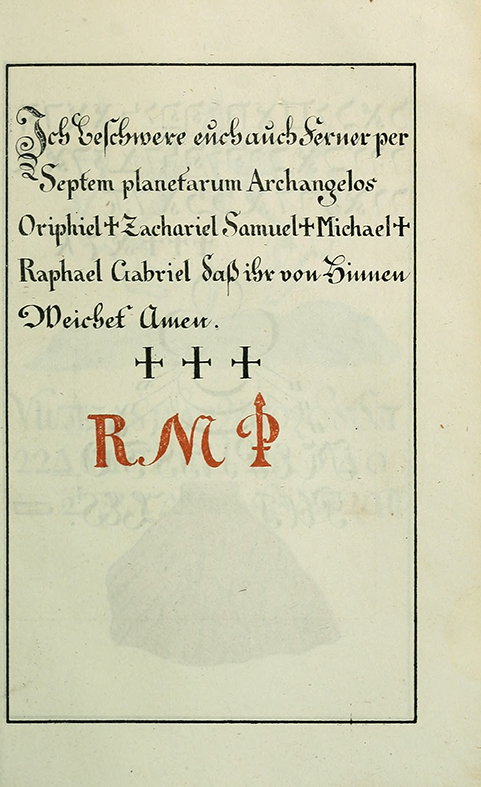 Ich beschwere euch auch Ferner per
Septem planetarum Archangelos
Oriphiel + Zachariel Samuel + Michael +
Raphael Gabriel daß ihr von Hinnen
Weichet Amen.
+ + +
R M P